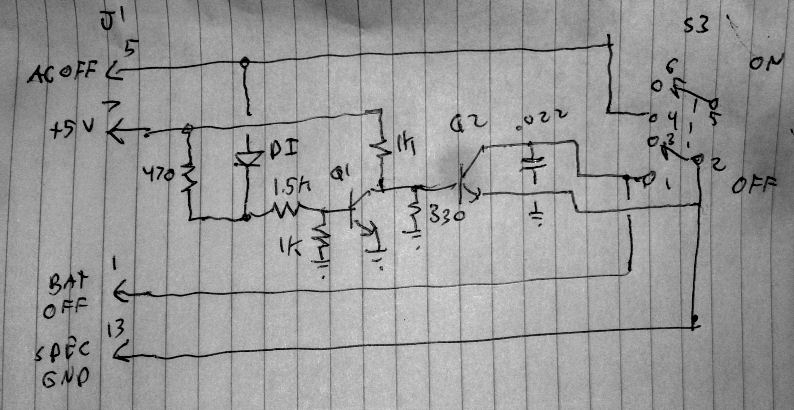 J1
S3
5
AC OFF
6
ON
5
7
+5V
Q2
.022
4
3
1K
Q1
DI
470
1.5K
2
1
OFF
330
1K
1
BAT
OFF
13
SPEC
GND